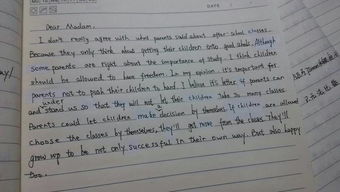 DATE
Dear Madam.
I don't really agree with what parents said about after-shool classes.
Because they only think about getting their children into good shools. Although
some parents are right about the importance of study. I think children
should be allowed to have freedom. In my opinion it's important for
parents not to push their children to hard. I believe it's better if parents can
under
and stand us so that they will not let their children take so many classes
Parents could let children make decision by themselves. If children are allowed
choose the classes by themselves, they'll get more from the classes. They'll
grow up to be not only successful in their own way. But also happy
too.